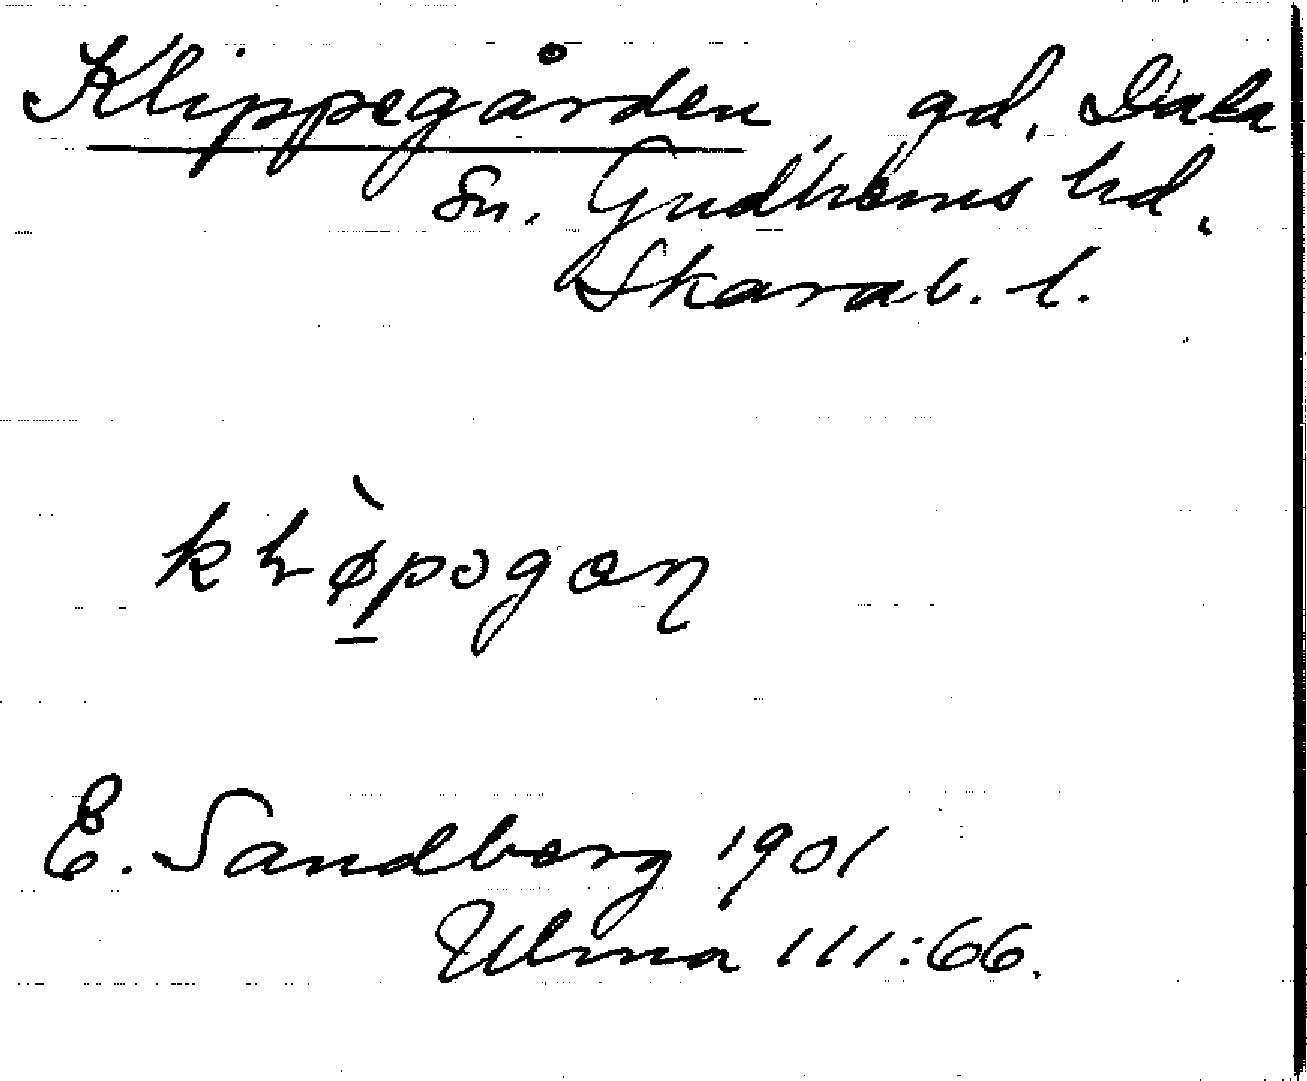 Klippegården, gd, Dala
Sn. Gudhems hd.
Skarab. l.
E. Sandberg 1901
Ulma 111:66.